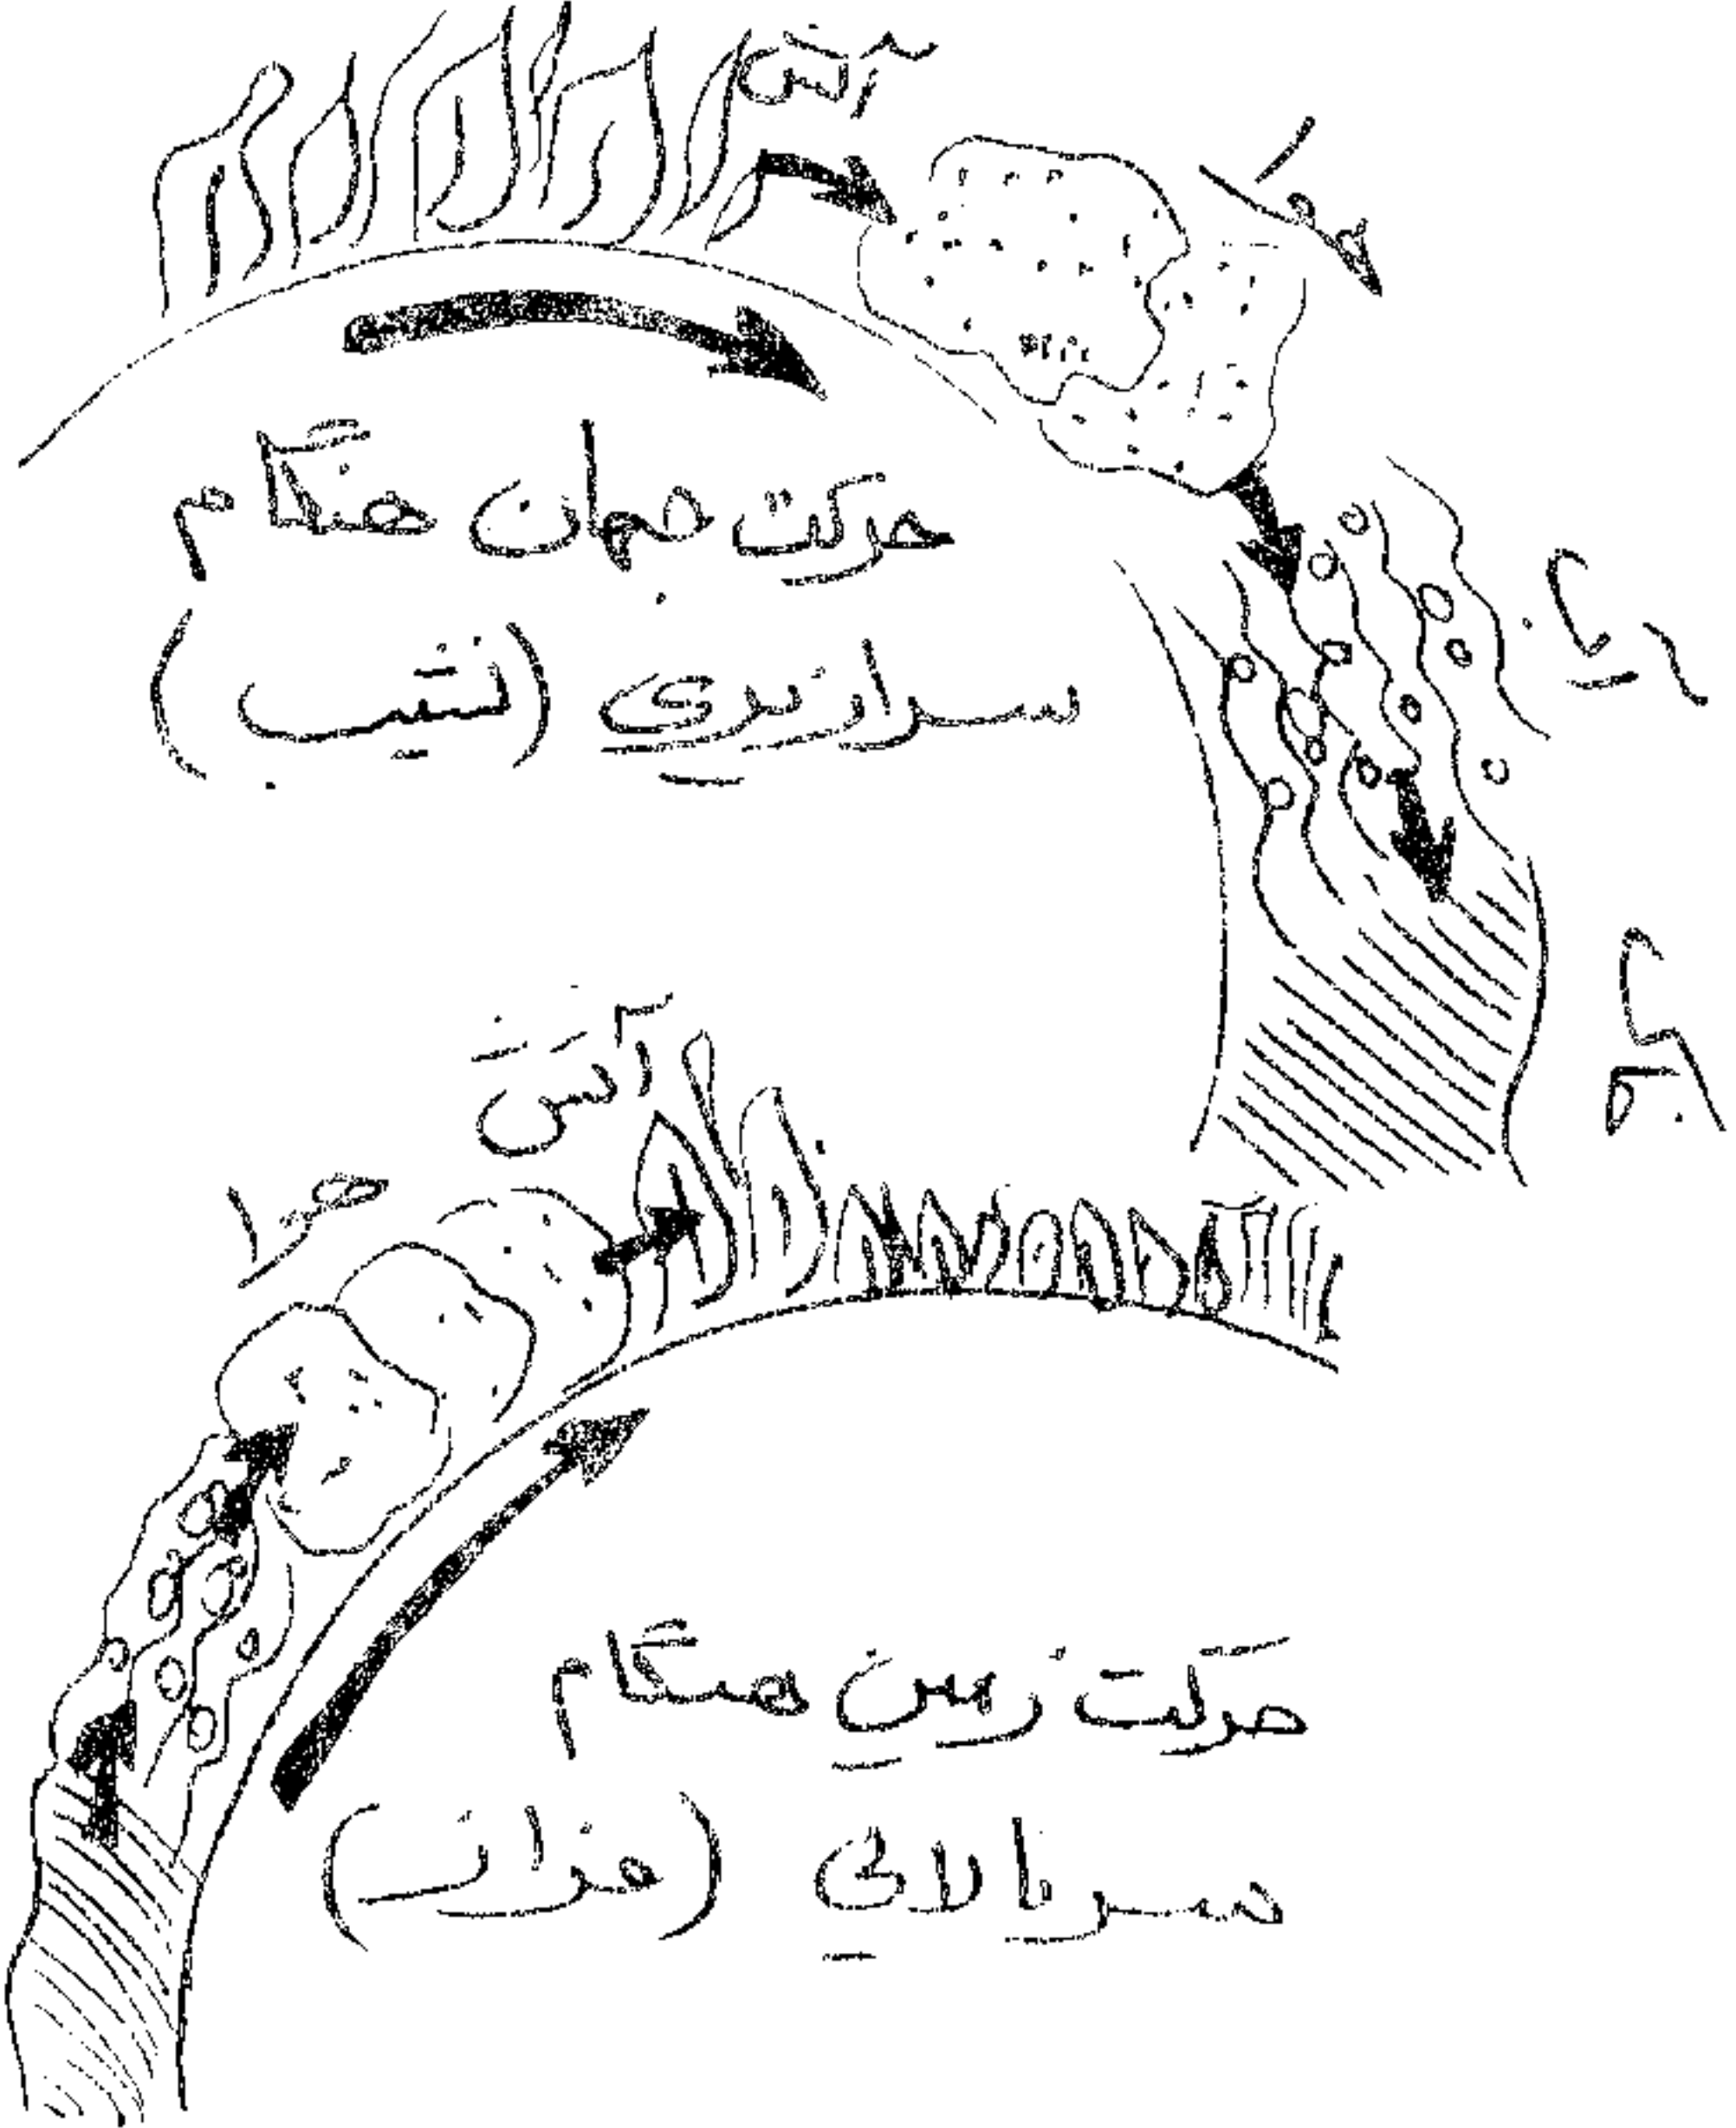 آتش
هوا
آب
خاک
حرکت جهان هنگام
سرازیری (نشیب)
آتش
هوا
حرکت زمین هنگام
سربالائی (فراز)